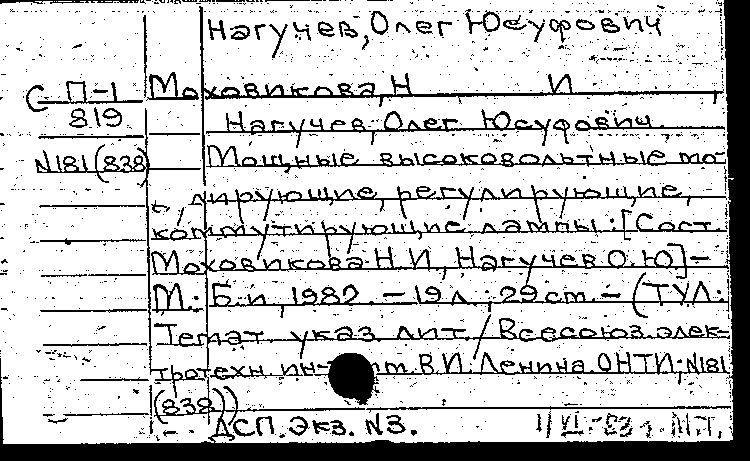 Нагучев, Олег Юсуфович
С П-1 Моховикова, Н И
819 Нагучев, Олег Юсуфович.
N181(838) Мощные высоковольтные мо-
дулирующие, регулирующие,
коммутирующие лампы: [Сост.
Моховикова Н.И., Нагучев О.Ю] –
М.: Б.и, 1982. – 19 л.; 29 cm. – (ТУЛ:
Темат. указ. лит. / Всесоюз. элек-
тротехн. ин-т им. В.И. Ленина. ОНТИ; N181
(838))
ДСП. Экз. N3.